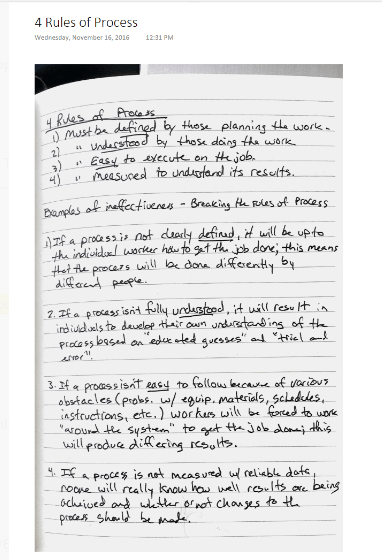 4 Rules of Process
Wednesday, November 16, 2016 12:31 PM
4 Rules of Process
1) Must be defined by those planning the work.
2) " understood by those doing the work
3) " Easy to execute on the job.
4) " measured to understand its results.
Examples of ineffectiveness - Breaking the rules of Process
1) If a process is not clearly defined, it will be up to
the individual worker how to get the job done; this means
that the process will be done differently by
different people.
2. If a process isn't fully understood, it will result in
individuals to develop their own understanding of the
process based on "educated guesses" and "trial and
error".
3. If a process isn't easy to follow because of various
obstacles (probs. w/ equip. materials, schedules,
instructions, etc.) workers will be forced to work
"around the system" to get the job done; this
will produce differing results.
4. If a process is not measured w/ reliable data,
noone will really know how well results are being
acheived and whether or not changes to th
process should be made.